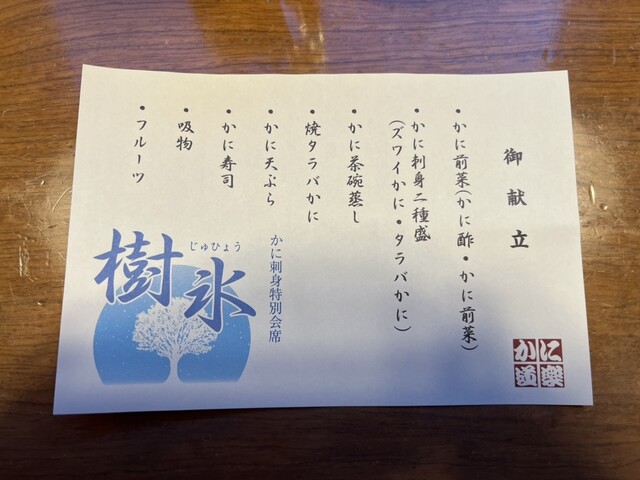 御献立
・かに前菜(かに酢・かに前菜)
・かに刺身二種盛
(ズワイかに・タラバかに)
・かに茶碗蒸し
・焼タラバかに
・かに天ぷら
・かに寿司
・吸物
・フルーツ
かに刺身特別会席
じゅひょう
樹氷
かに道楽